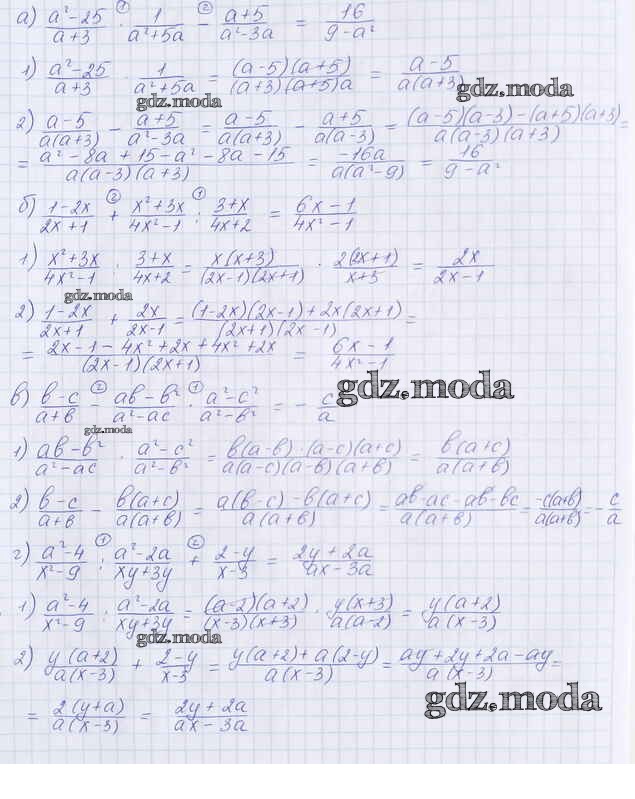 а) (a²-25)/(a+3) ·① 1/(a²+5a) -② (a+5)/(a²-3a) = 16/(9-a²)
1) (a²-25)/(a+3) · 1/(a²+5a) = (a-5)(a+5)/((a+3)(a+5)a) = (a-5)/(a(a+3))
gdz.moda
gdz.moda
2) (a-5)/(a(a+3)) - (a+5)/(a²-3a) = (a-5)/(a(a+3)) - (a+5)/(a(a-3)) = ((a-5)(a-3)-(a+5)(a+3))/(a(a-3)(a+3)) =
= (a²-8a+15-a²-8a-15)/(a(a-3)(a+3)) = -16a/(a(a²-9)) = 16/(9-a²)
б) (1-2x)/(2x+1) +② (x²+3x)/(4x²-1) :① (3+x)/(4x+2) = (6x-1)/(4x²-1)
1) (x²+3x)/(4x²-1) : (3+x)/(4x+2) = x(x+3)/((2x-1)(2x+1)) · 2(2x+1)/(x+3) = 2x/(2x-1)
gdz.moda
2) (1-2x)/(2x+1) + 2x/(2x-1) = ((1-2x)(2x-1)+2x(2x+1))/((2x+1)(2x-1)) =
= (2x-1-4x²+2x+4x²+2x)/((2x-1)(2x+1)) = (6x-1)/(4x²-1)
gdz.moda
в) (b-c)/(a+b) -② (ab-b²)/(a²-ac) ·① (a²-c²)/(a²-b²) = -c/a
gdz.moda
1) (ab-b²)/(a²-ac) · (a²-c²)/(a²-b²) = b(a-b)·(a-c)(a+c)/(a(a-c)(a-b)(a+b)) = b(a+c)/(a(a+b))
2) (b-c)/(a+b) - b(a+c)/(a(a+b)) = (a(b-c)-b(a+c))/(a(a+b)) = (ab-ac-ab-bc)/(a(a+b)) = -c(a+b)/(a(a+b)) = -c/a
г) (a²-4)/(x²-9) :① (a²-2a)/(xy+3y) +② (2-y)/(x-3) = (2y+2a)/(ax-3a)
1) (a²-4)/(x²-9) : (a²-2a)/(xy+3y) = (a-2)(a+2)/((x-3)(x+3)) · y(x+3)/(a(a-2)) = y(a+2)/(a(x-3))
gdz.moda
2) y(a+2)/(a(x-3)) + (2-y)/(x-3) = (y(a+2)+a(2-y))/(a(x-3)) = (ay+2y+2a-ay)/(a(x-3)) =
gdz.moda
= 2(y+a)/(a(x-3)) = (2y+2a)/(ax-3a)